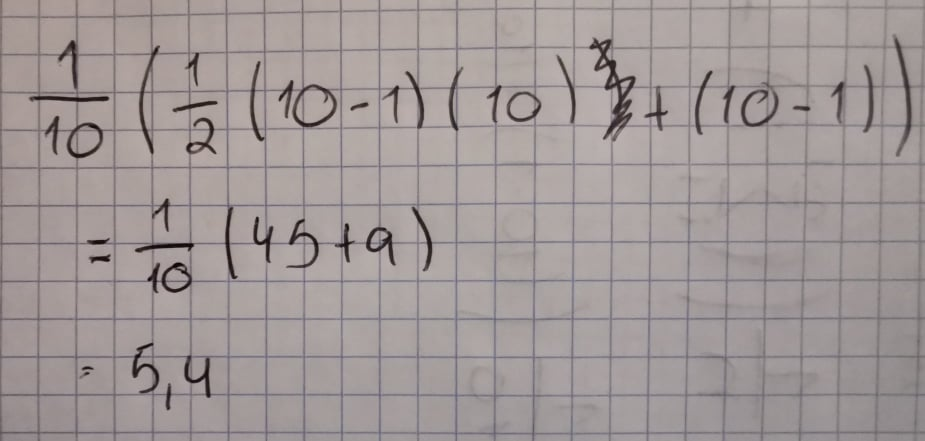 1/10 (1/2 (10-1)(10) + (10-1))
= 1/10 (45+9)
= 5,4